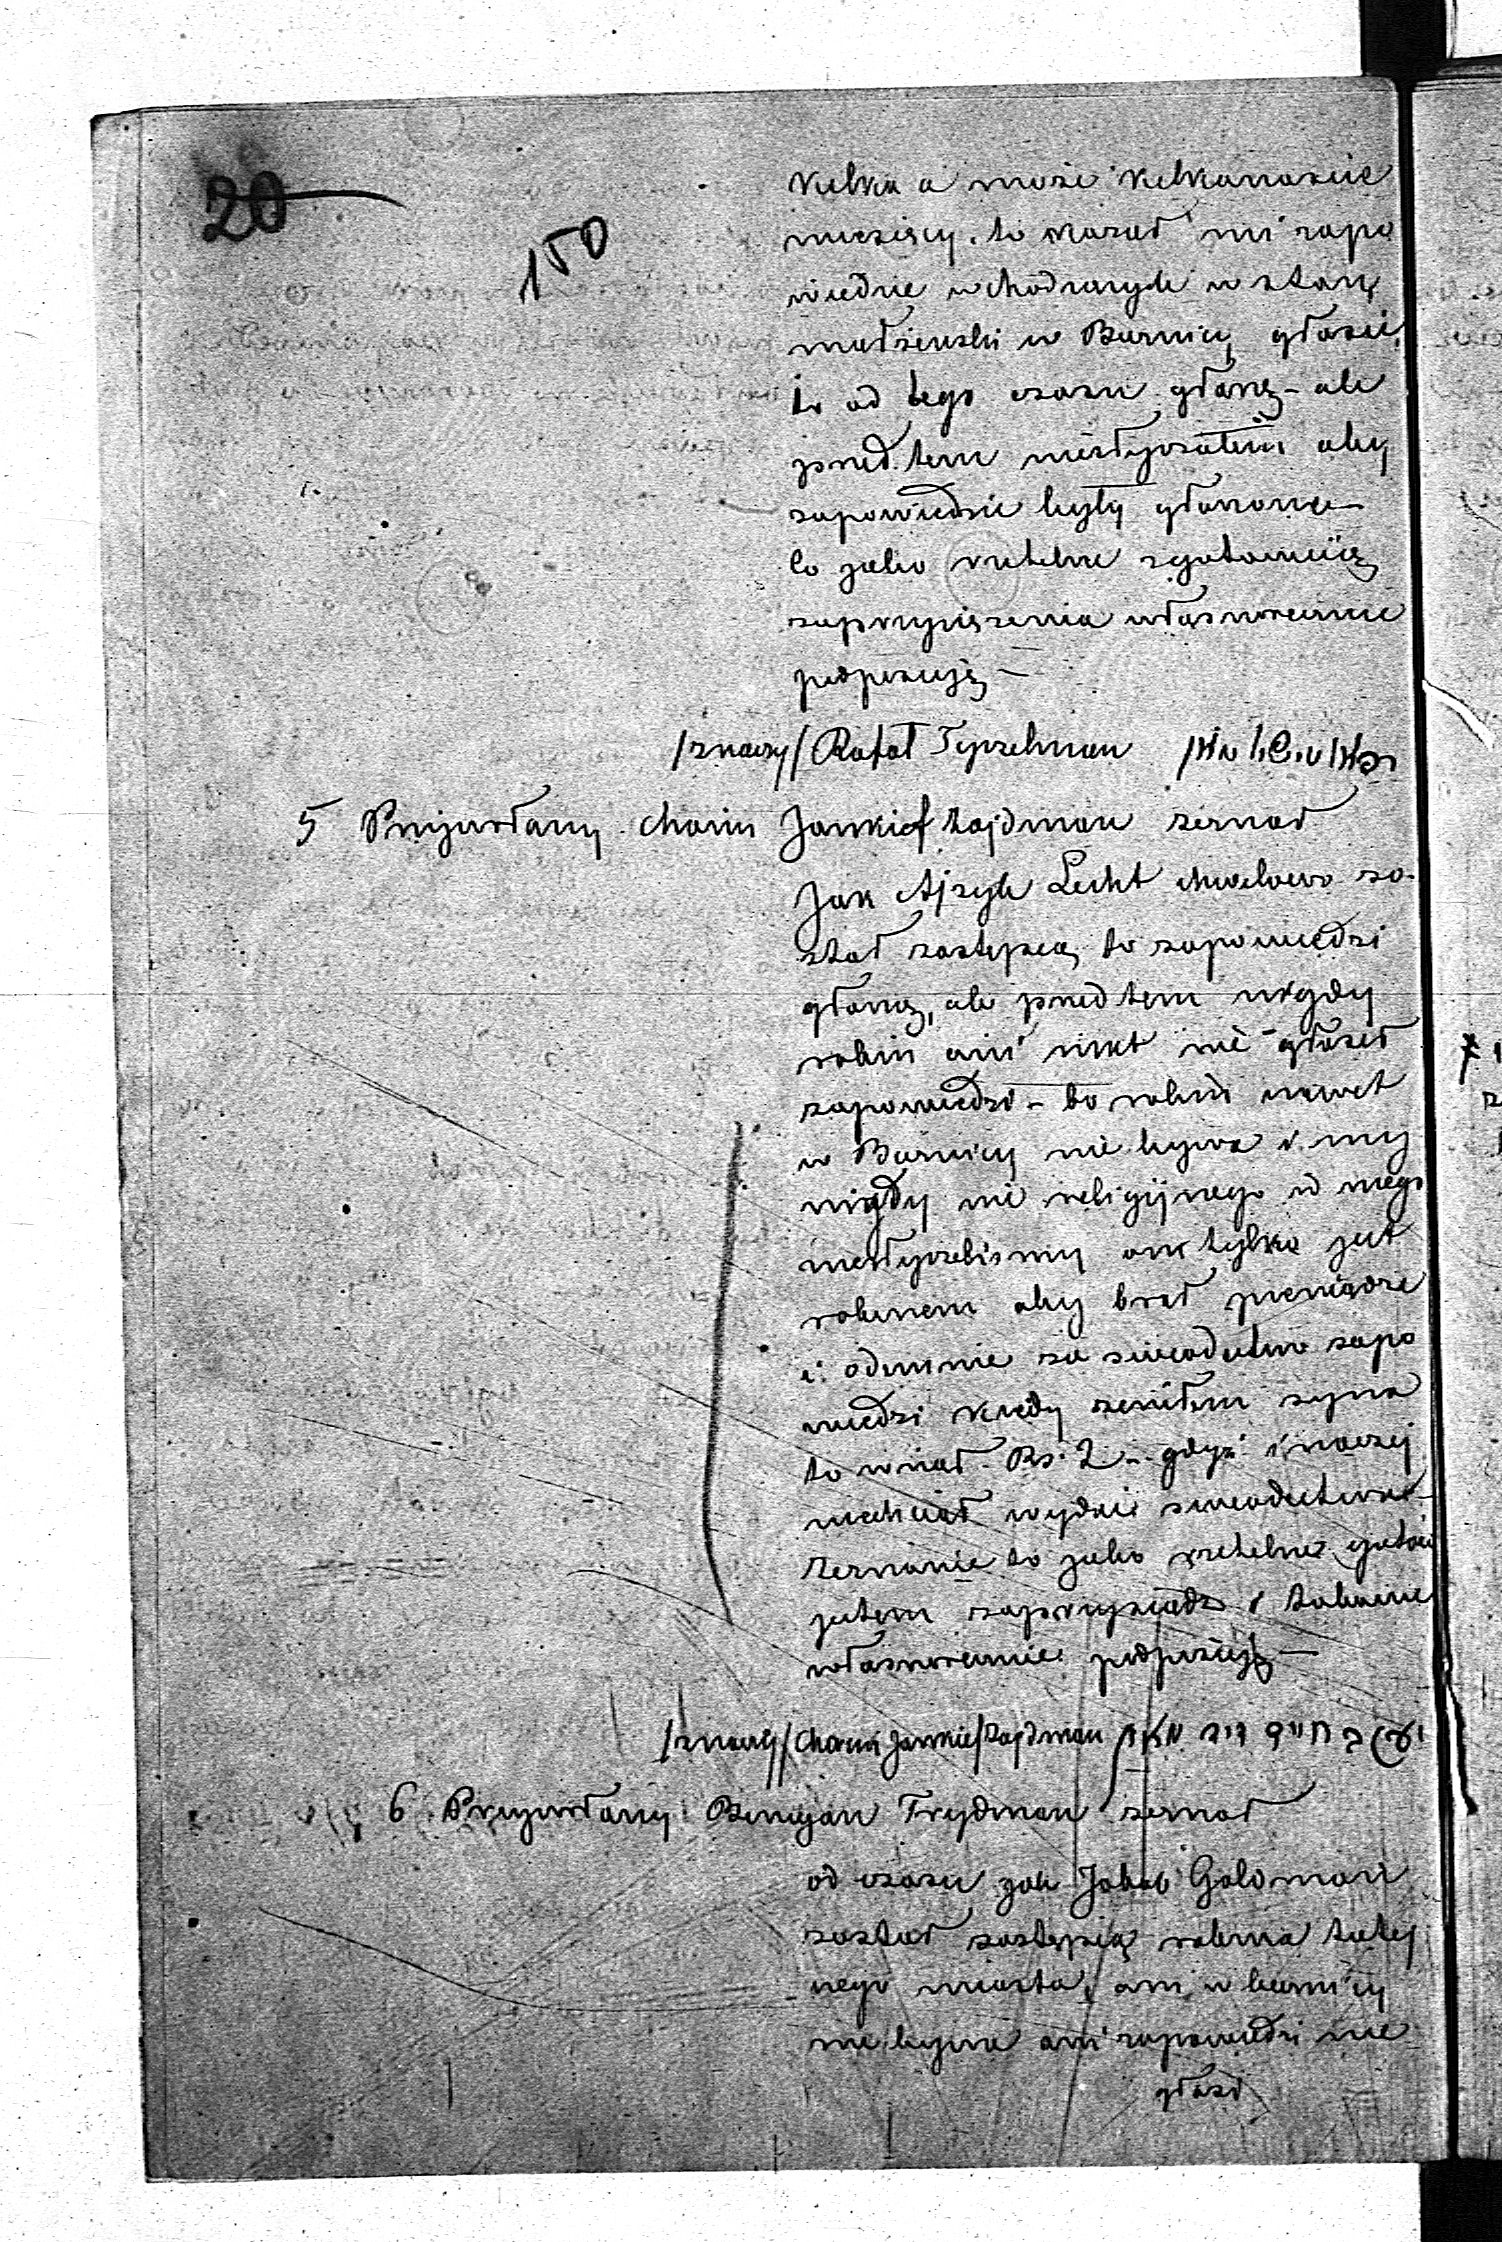 20
150
kilka a może kilkanaście
miesięcy. to kazał mi zapo
wiednie wchodzących w stan
małżenski w Buznicy głosić,
i od tego czasu głoszę – ale
przed tem niesłyszałem aby
zapowiedzie były głoszone –
Co jako rzetelne z gotowością
zaprzysiężenia własnoręcznie
podpisuję –
/znaczy/ Rafał Tyszelman
5 Przywołany Chaim Jankief Zajdman zeznał
Jak Ajzyk Lecht chwilowo zo-
stał zastępcą to zapowiedzi
głoszą, ale przed tem nigdy
rabin ani nikt nie głosił
zapowiedzi – bo rabin nawet
w Buznicy nie bywa i my
nigdy nic religijnego od niego
niesłyszeliśmy on tylko jest
rabinem aby brał pieniądze
i odemnie za swiadectwo zapo
wiedzi kiedy żeniłem syna
to wziął Rs. 2 – gdyż inaczej
niechciał wydać swiadectwa –
Zeznanie to jako rzetelne gotów
jestem zaprzysiądz i takowe
własnoręcznie podpisuję –
/znaczy/ Chaim Jankief Zajdman
6 Przywołany Beniejan Frydman zeznał
od czasu jak Jakob Goldman
został zastępcą rabina tutej
nego miasta, ani w buznicy
nie bywa ani zapowiedzi nie
głosił